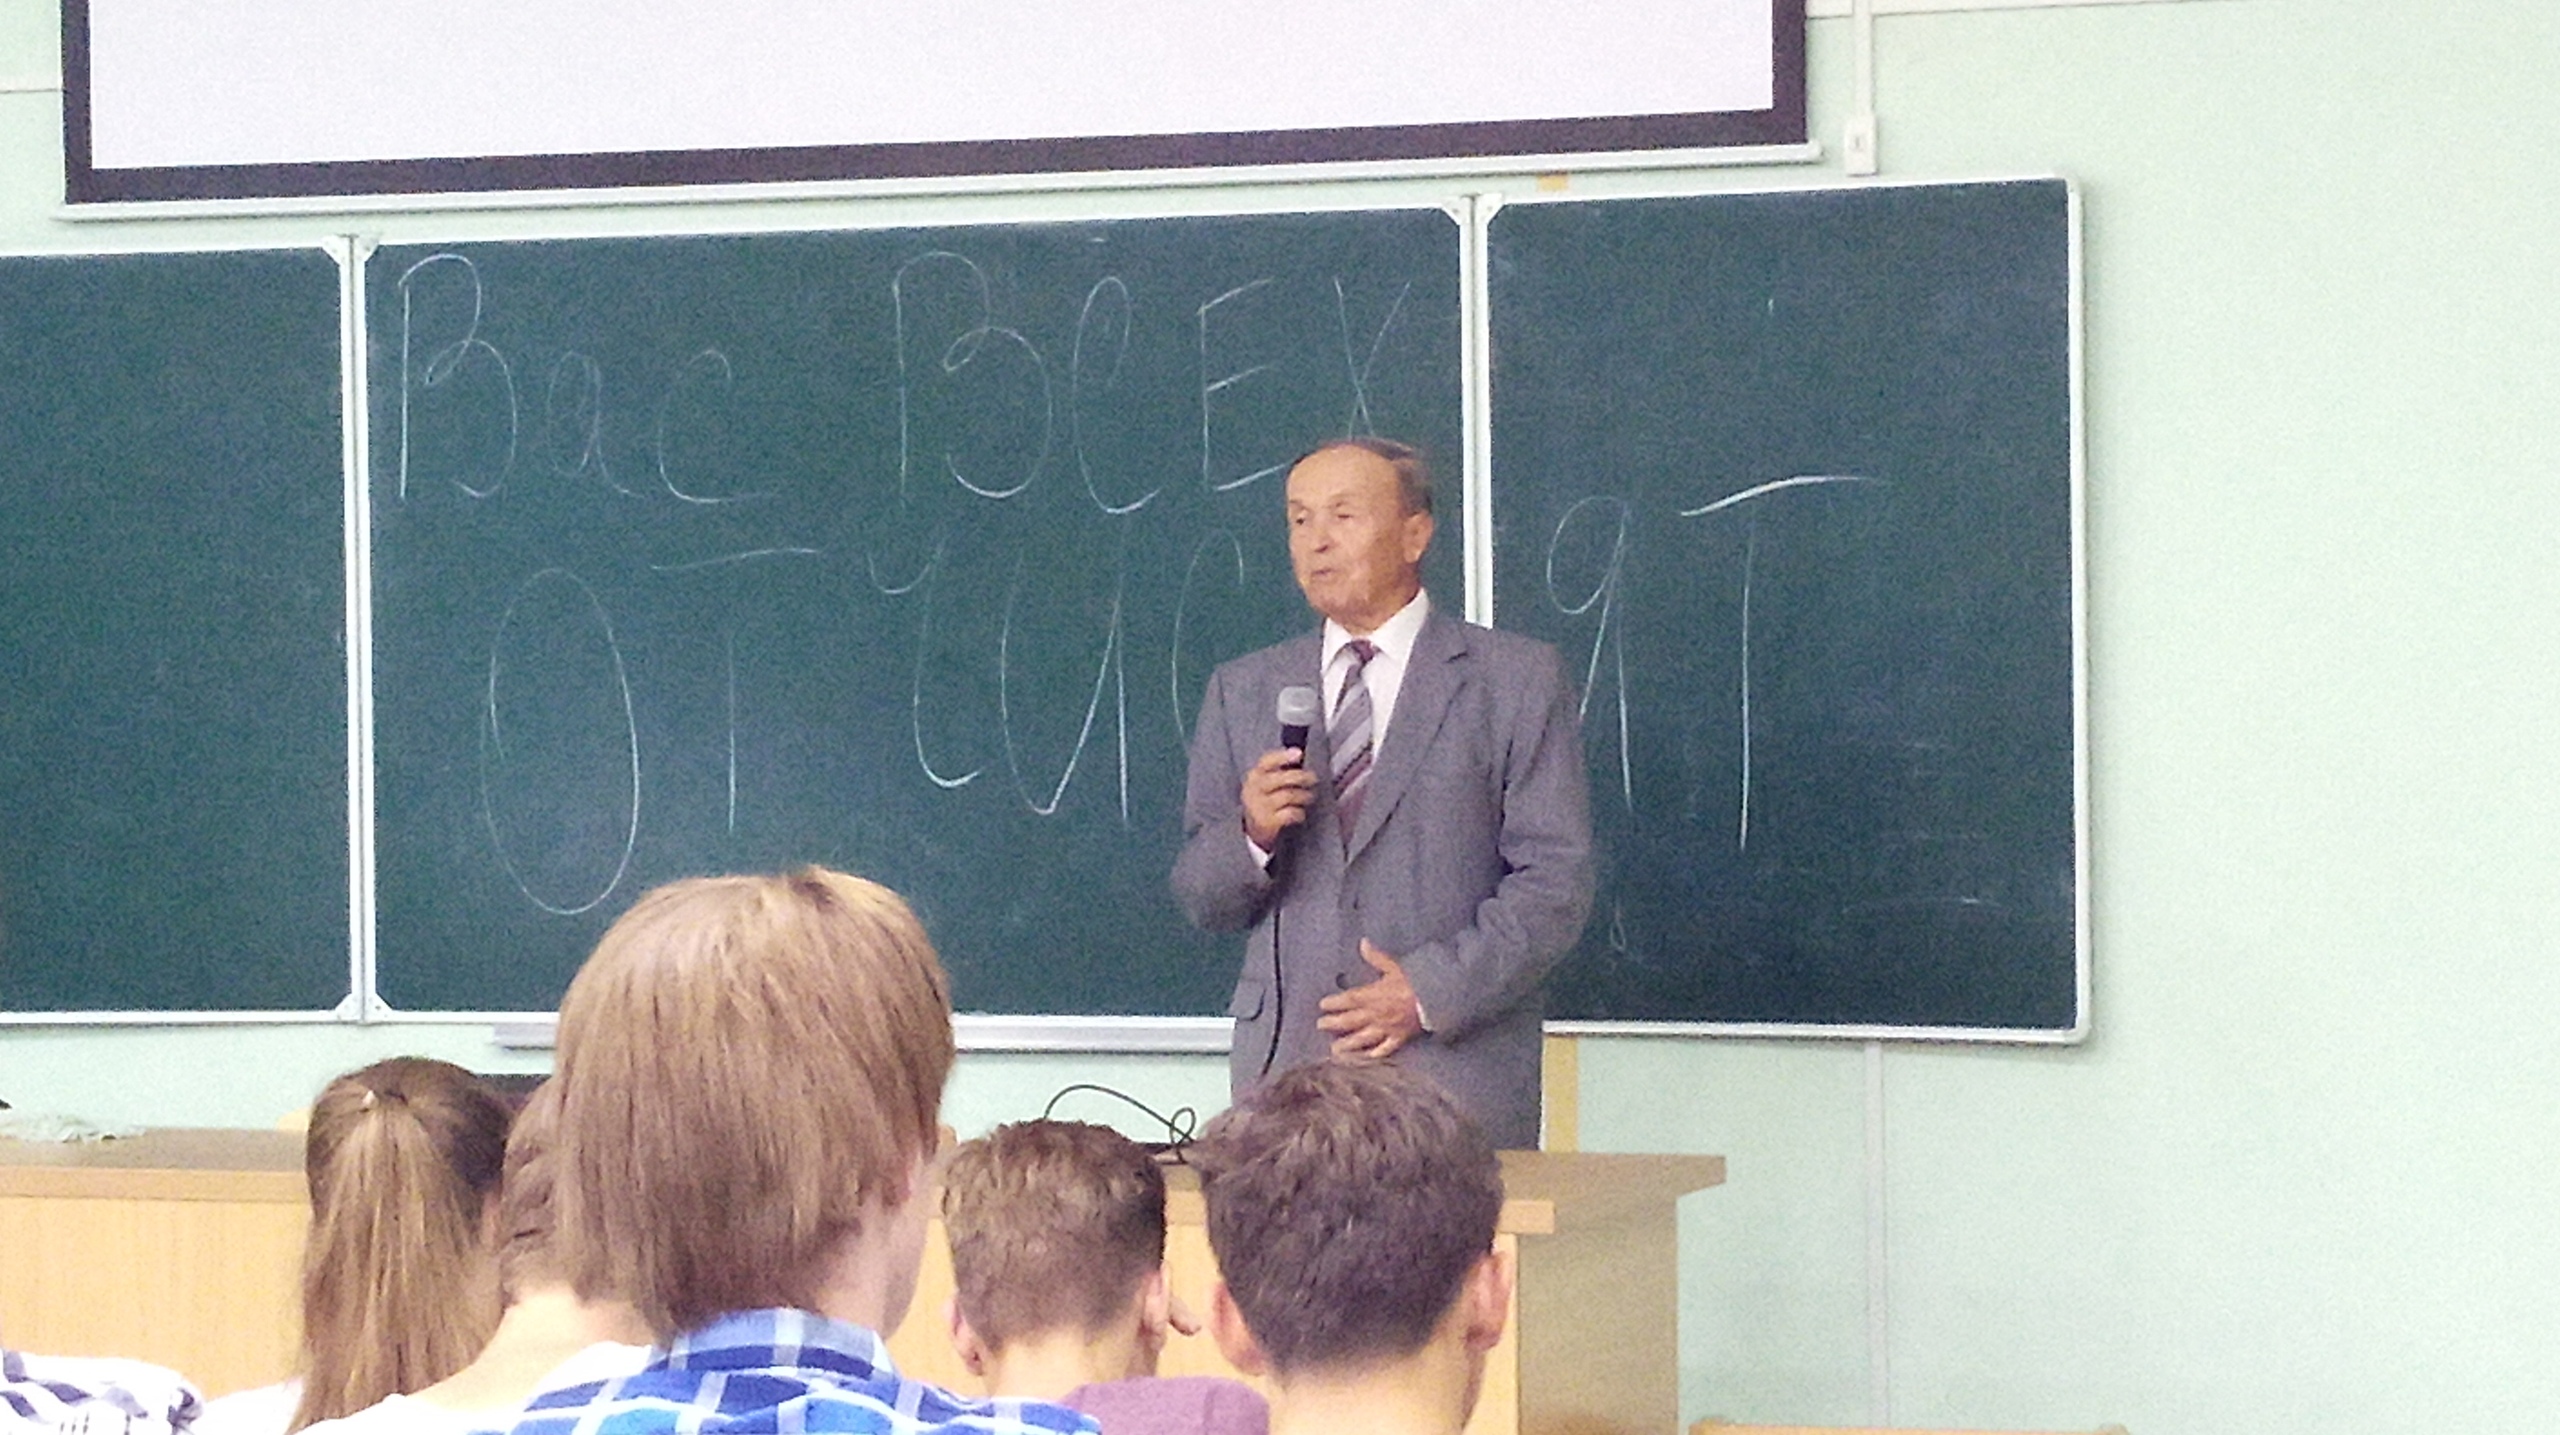 Вас ВСЕХ
ОТЧИСЛЯТ